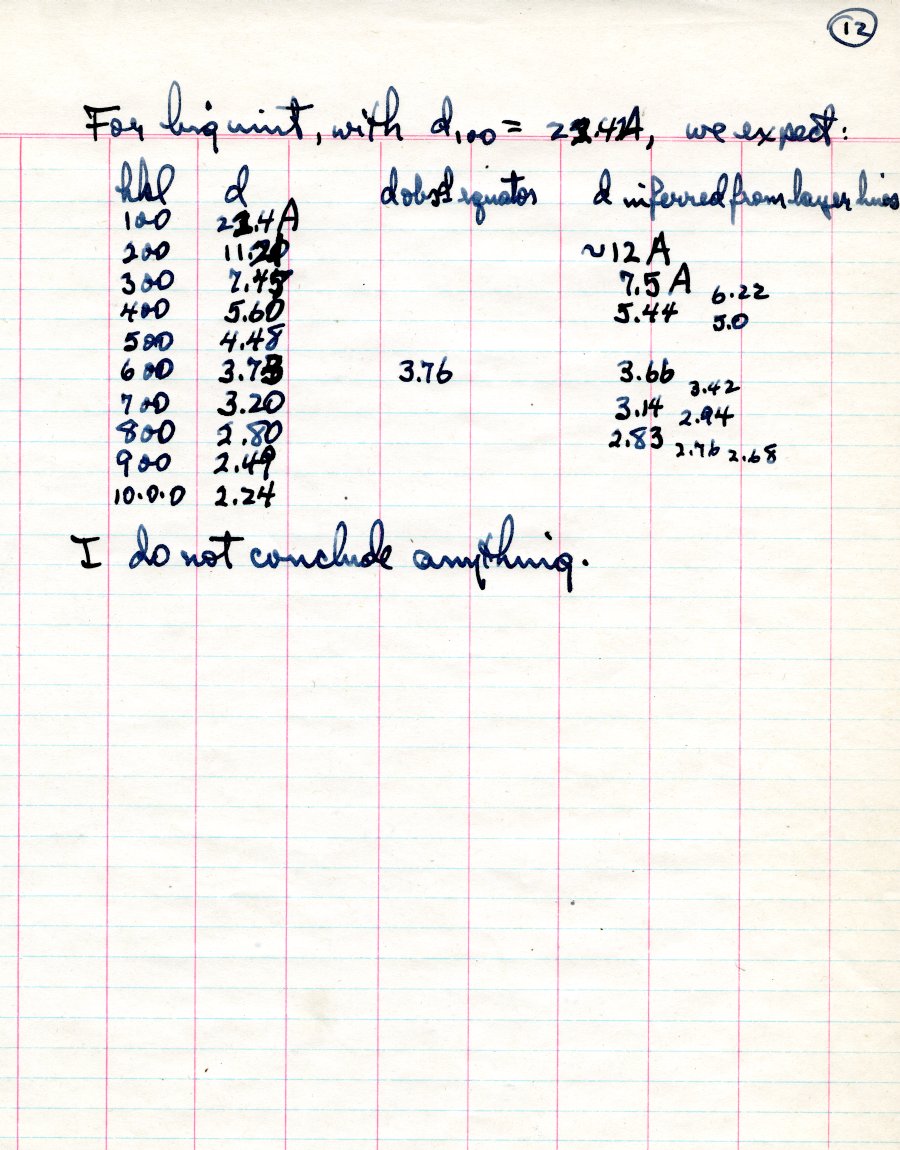 12
For big unit, with d₁₀₀ = 22.4 A, we expect:
hkl d d obsd equator d inferred from layer lines
100 22.4 A
200 11.20 ~12 A
300 7.45 7.5 A 6.22
400 5.60 5.44 5.0
500 4.48
600 3.73 3.76 3.66 3.42
700 3.20 3.14 2.94
800 2.80 2.83 2.76 2.68
900 2.49
10.0.0 2.24
I do not conclude anything.